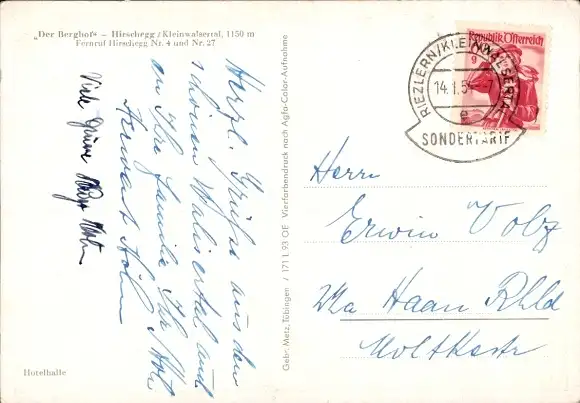 „Der Berghof" – Hirschegg / Kleinwalsertal, 1150 m
Fernruf Hirschegg Nr. 4 und Nr. 27
Herzl. Grüße aus dem
schönen Walsertal und
an Ihre Familie Ihr
Viele Grüsse
Hotelhalle
Gebr. Metz, Tübingen / 1711.93 OF Vierfarbendruck nach Agfa-Color-Aufnahme
Republik Österreich
RIEZLERN/KLEINWALSERTAL
14.1.5
e
SONDERTARIF
Herrn
Erwin Volz
Haan Rhld
Moltkestr